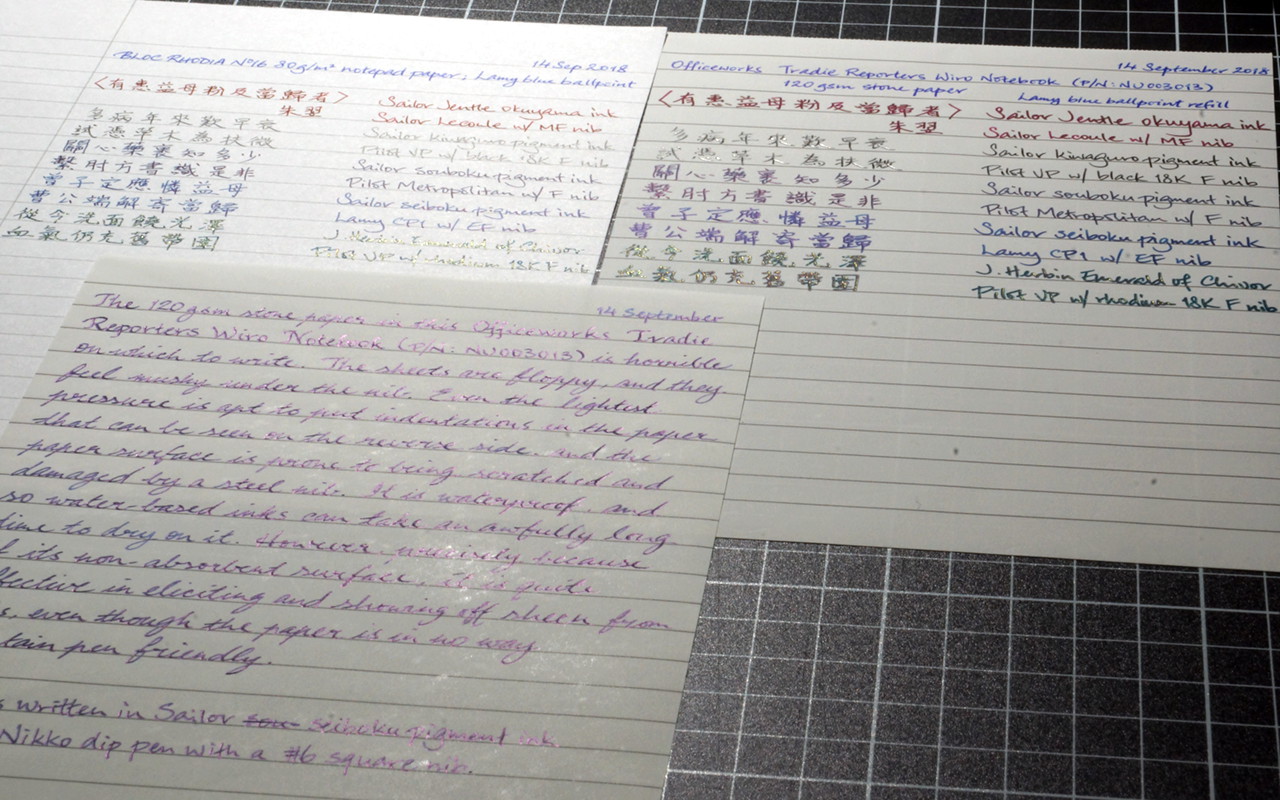 BLOC RHODIA Nº16 80g/m² notepad paper; Lamy blue ballpoint
14 Sep 2018
〈有惠益母粉及當歸者〉
朱翌
多病年來歎早衰
試憑草木為扶微
關心藥裹知多少
繫肘方書識是非
曾子定應憐益母
曹公端解寄當歸
從今洗面饒光澤
血氣仍充舊帶圍
Sailor Jentle Okuyama ink
Sailor Lecoule w/ MF nib
Sailor kiwaguro pigment ink
Pilot VP w/ black 18K F nib
Sailor souboku pigment ink
Pilot Metropolitan w/ F nib
Sailor seiboku pigment ink
Lamy CP1 w/ EF nib
J. Herbin Emerald of Chivor
Pilot VP w/ rhodium 18K F nib
Officeworks Tradie Reporters Wiro Notebook (P/N: NU003013)
14 September 2018
120gsm stone paper
Lamy blue ballpoint refill
〈有惠益母粉及當歸者〉
朱翌
多病年來歎早衰
試憑草木為扶微
關心藥裹知多少
繫肘方書識是非
曾子定應憐益母
曹公端解寄當歸
從今洗面饒光澤
血氣仍充舊帶圍
Sailor Jentle Okuyama ink
Sailor Lecoule w/ MF nib
Sailor kiwaguro pigment ink
Pilot VP w/ black 18K F nib
Sailor souboku pigment ink
Pilot Metropolitan w/ F nib
Sailor seiboku pigment ink
Lamy CP1 w/ EF nib
J. Herbin Emerald of Chivor
Pilot VP w/ rhodium 18K F nib
14 September
The 120gsm stone paper in this Officeworks Tradie
Reporters Wiro Notebook (P/N: NU003013) is horrible
on which to write. The sheets are floppy, and they
feel mushy under the nib. Even the lightest
pressure is apt to put indentations in the paper
that can be seen on the reverse side, and the
paper surface is prone to being scratched and
damaged by a steel nib. It is waterproof, and
so water-based inks can take an awfully long
time to dry on it. However, precisely because
its non-absorbent surface, it is quite
ffective in eliciting and showing off sheen from
s, even though the paper is in no way
tain pen friendly.
s written in Sailor sou- seiboku pigment ink
Nikko dip pen with a #6 square nib.